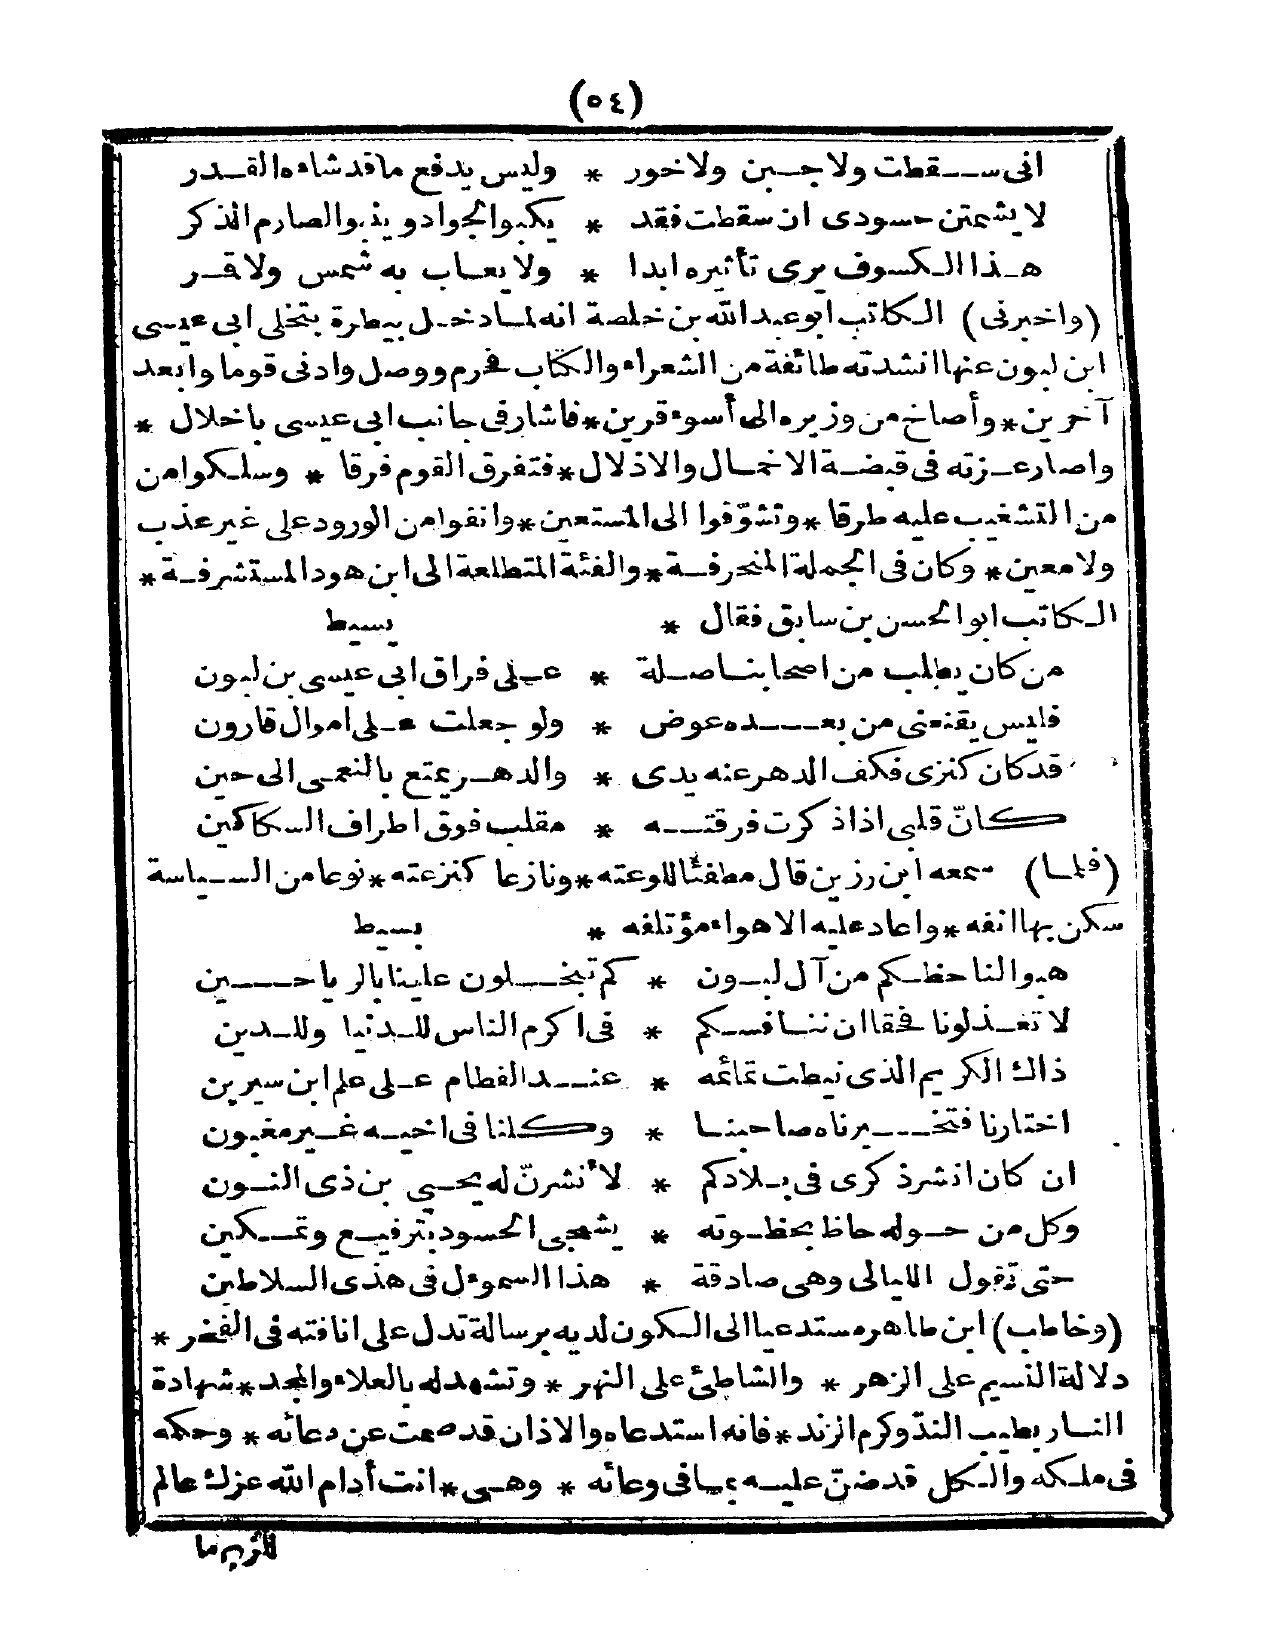 (٥٤)
انى سقطت ولا جبن ولا خور * وليس يدفع ما قد شاءه القدر
لا يشمتن حسودى ان سقطت فقد * يكبو الجواد و ينبو الصارم الذكر
هذا الكسوف يرى تأثيره ابدا * ولا يعاب به شمس ولا قمر
(واخبرنى) الكاتب ابو عبد الله بن خلصة انه لما دخل بيطرة بتخلى ابى عيسى
ابن لبون عنها انشدته طائفة من الشعراء والكتاب فحرم ووصل وادنى قوما وابعد
آخرين * وأصاخ من وزيره الى أسوء قرين * فاشار فى جانب ابى عيسى باخلال *
واصار عزته فى قبضة الاخمال والاذلال * فتفرق القوم فرقا * وسلكوا من
من التشغيب عليه طرقا * وتشوّفوا الى المستعين * وانفوا من الورود على غير عذب
ولا معين * وكان فى الجملة المنحرفة * والفئة المتطلعة الى ابن هود المستشرفة *
الكاتب ابو الحسن بن سابق فقال * بسيط
من كان يطلب من اصحابنا صلة * على فراق ابى عيسى بن لبون
فليس يقنعنى من بعده عوض * ولو جعلت على اموال قارون
قد كان كنزى فكف الدهر عنه يدى * والدهر يمتع بالنعمى الى حين
كانّ قلبى اذا ذكرت فرقته * مقلب فوق اطراف السكاكين
(فلما) سمعه ابن رزين قال مطفئا للوعته * ونازعا كنزعته * نوعا من السياسة
سكن بها انفه * واعاد عليه الاهواء مؤتلفه * بسيط
هبوا لنا حظكم من آل لبون * كم تبخلون علينا بالرياحين
لا تعذلونا فحقا ان ننافسكم * فى اكرم الناس للدنيا وللدين
ذاك الكريم الذى نيطت تمائمه * عند الفطام على علم ابن سيرين
اختارنا فتخيرناه صاحبنا * وكلنا فى اخيه غير مغبون
ان كان انشر ذكرى فى بلادكم * لأنشرنّ له يحيى بن ذى النون
وكل من حوله حاظ بحظوته * يشجى الحسود بترفيع وتمكين
حتى تقول الليالى وهى صادقة * هذا السموءل فى هذى السلاطين
(وخاطب) ابن طاهر مستدعيا الى الكون لديه برسالة تدل على انافته فى الفخر *
دلالة النسيم على الزهر * والشاطئ على النهر * وتشهد له بالعلاء والمجد * شهادة
النار بطيب الندّ وكرم الزند * فانه استدعاه والاذان قد صمت عن دعائه * وحكمه
فى ملكه والكل قد ضنّ عليه بما فى وعائه * وهى * انت أدام الله عزك عالم